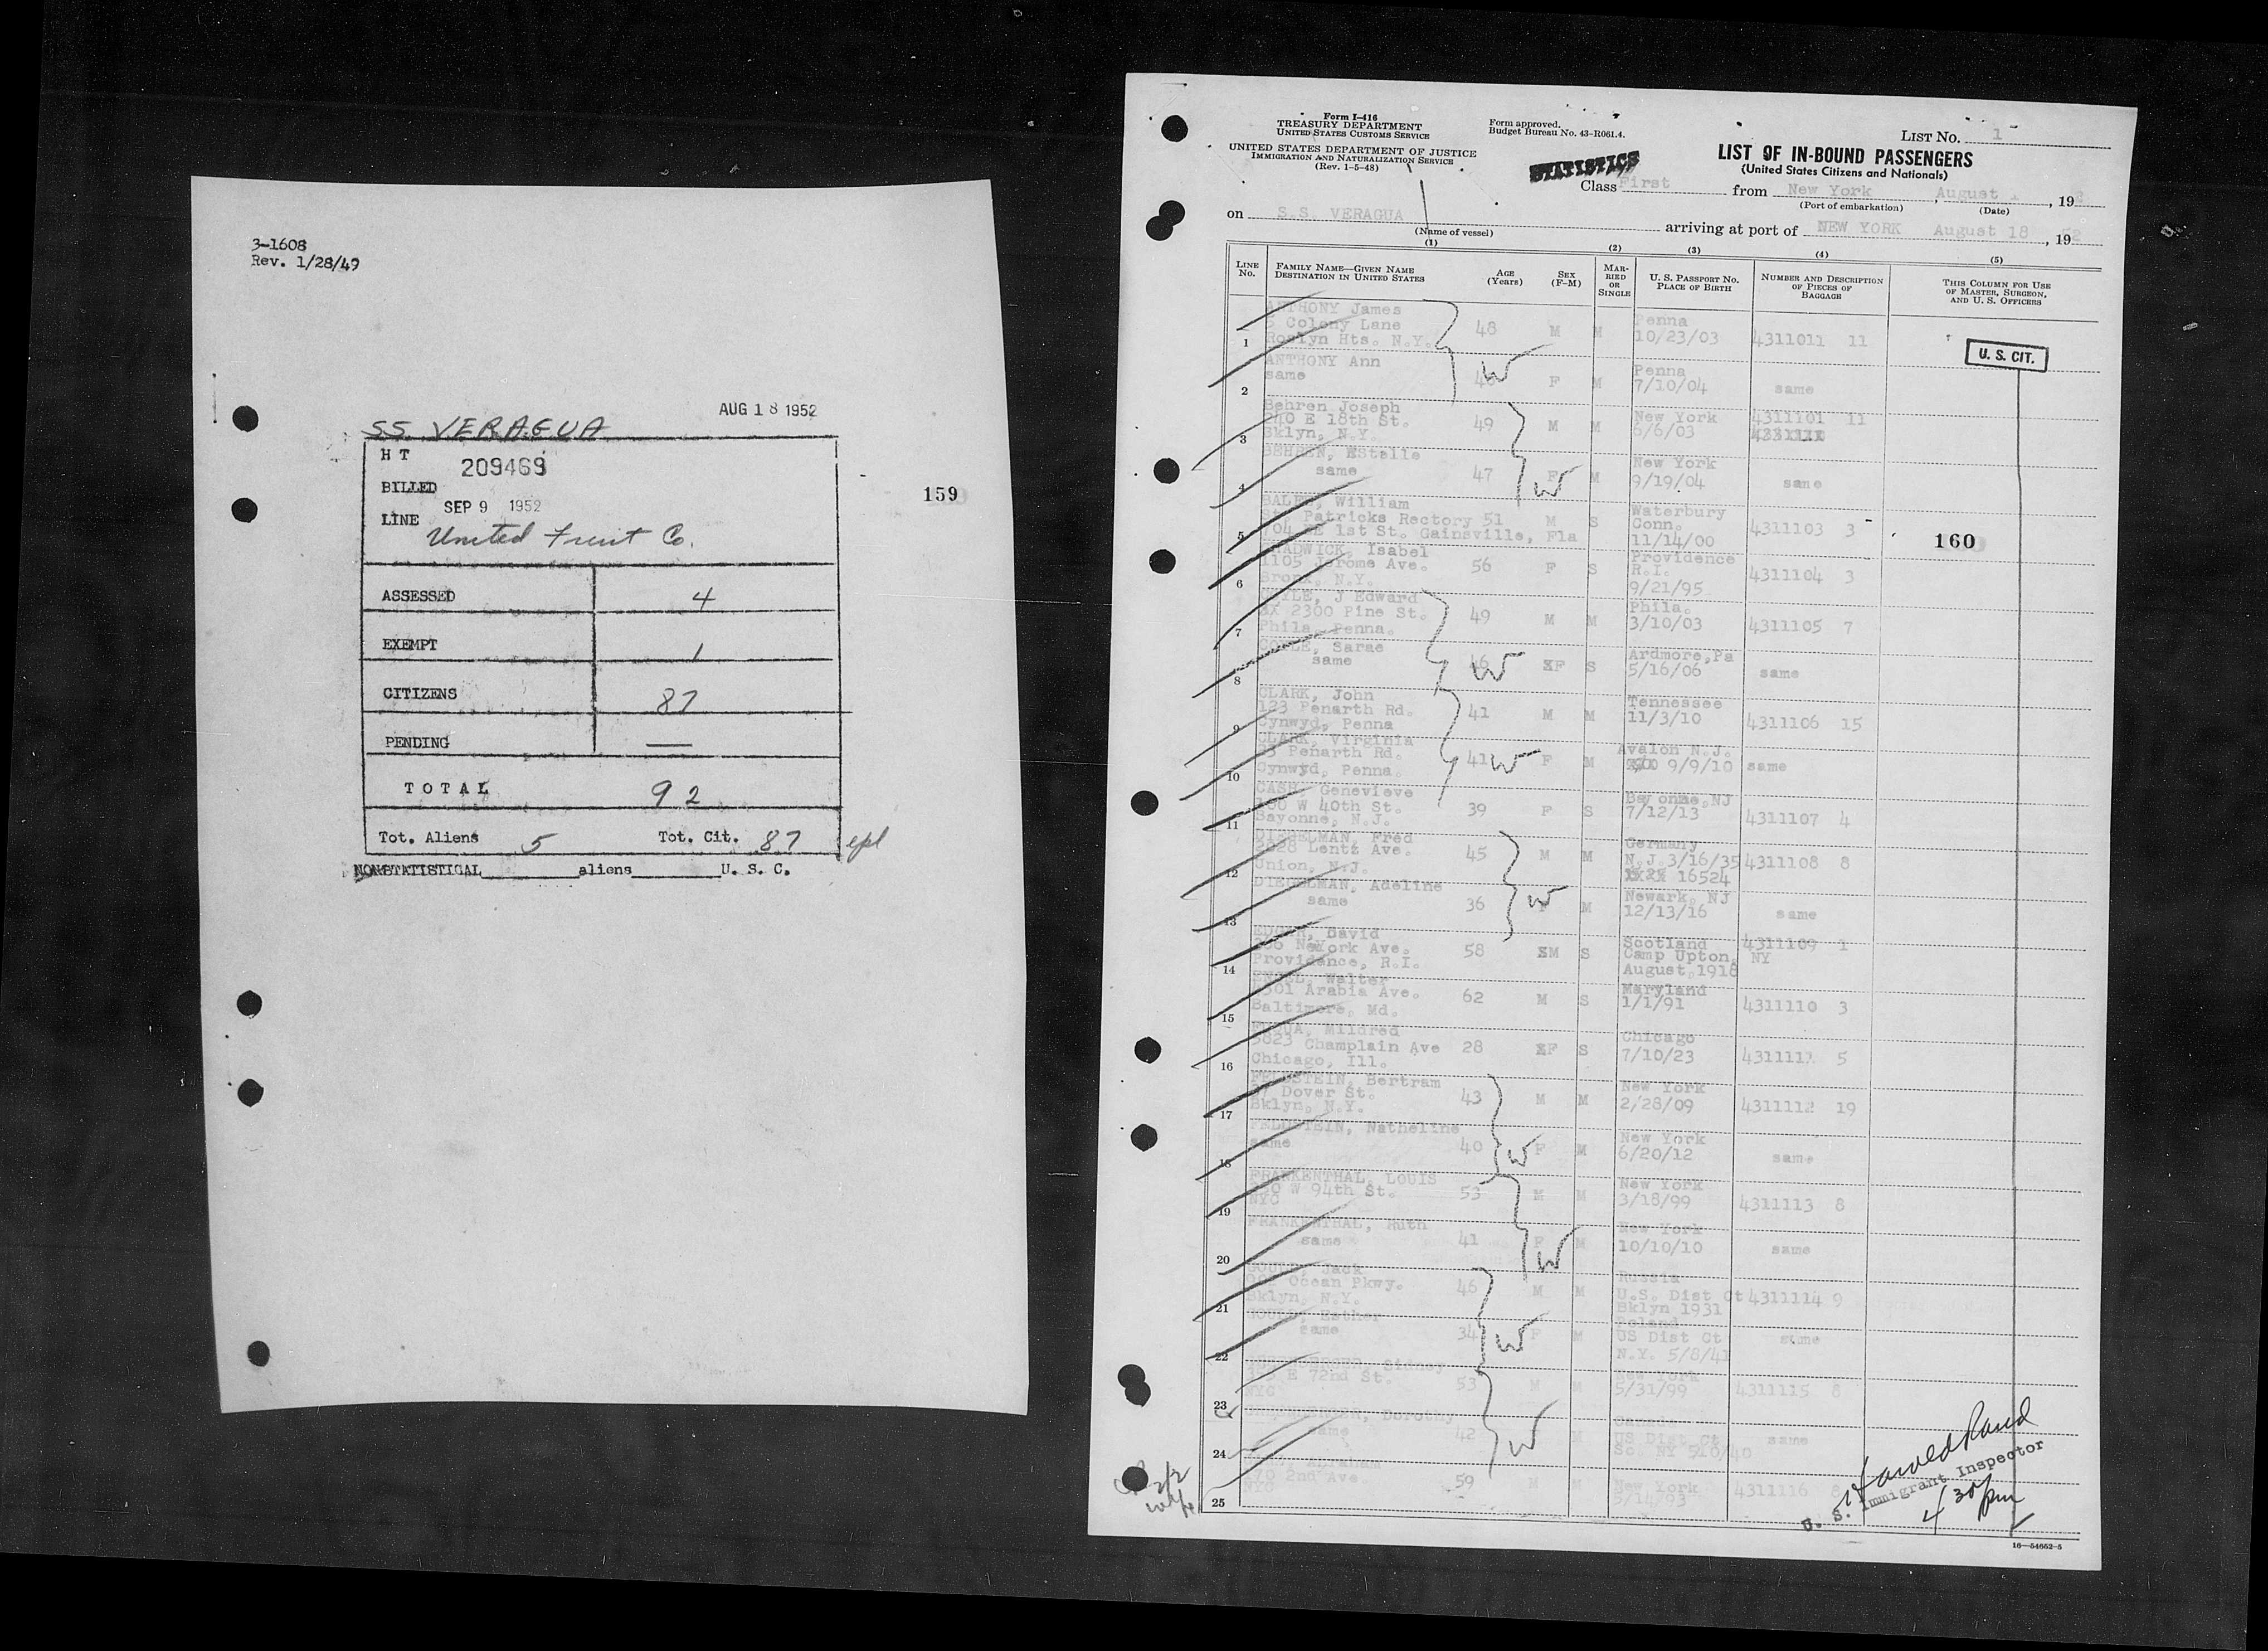 3-1608
Rev. 1/28/49
AUG 18 1952
SS. VERAGUA
H T
209469
BILLED
SEP 9 1952
LINE
United Fruit Co.
ASSESSED 4
EXEMPT 1
CITIZENS 87
PENDING —
TOTAL 92
Tot. Aliens 5 Tot. Cit. 87
NONSTATISTICAL aliens U. S. C.
159
Form I-416
TREASURY DEPARTMENT
UNITED STATES CUSTOMS SERVICE
UNITED STATES DEPARTMENT OF JUSTICE
IMMIGRATION AND NATURALIZATION SERVICE
(Rev. 1-5-48)
Form approved.
Budget Bureau No. 43-R061.4.
STATISTICS
LIST No. 1
LIST OF IN-BOUND PASSENGERS
(United States Citizens and Nationals)
Class First from New York, August , 19
(Port of embarkation) (Date)
on S.S. VERAGUA arriving at port of NEW YORK August 18, 1952
(Name of vessel)
(1) (2) (3) (4) (5)
LINE No.
FAMILY NAME—GIVEN NAME
DESTINATION IN UNITED STATES
AGE (Years)
SEX (F-M)
MARRIED OR SINGLE
U. S. PASSPORT No.
PLACE OF BIRTH
NUMBER AND DESCRIPTION OF PIECES OF BAGGAGE
THIS COLUMN FOR USE OF MASTER, SURGEON, AND U. S. OFFICERS
U. S. CIT.
160
1 ANTHONY James 48 M M Penna
Colony Lane 10/23/03 4311011 11
Roslyn Hts. N.Y.
2 ANTHONY Ann F M Penna
same W 7/10/04 same
3 Behren Joseph 49 M M New York 4311101 11
240 E 18th St. 6/6/03
Bklyn, N.Y.
4 BEHREN, EStelle 47 F M New York
same W 9/19/04 same
5 William 51 M S Waterbury
St. Patricks Rectory Conn. 4311103 3
1st St. Gainsville, Fla 11/14/00
6 CHADWICK, Isabel 56 F S Providence
1105 Jerome Ave. R.I. 4311104 3
Bronx, N.Y. 9/21/95
7 J Edward 49 M M Phila.
2300 Pine St. 3/10/03 4311105 7
Phila, Penna.
8 Sarae 46 F S Ardmore,Pa
same W 5/16/06 same
9 CLARK, John 41 M M Tennessee
123 Penarth Rd. 11/3/10 4311106 15
Cynwyd, Penna
10 CLARK, Virginia 41 W F M Avalon N.J.
Penarth Rd. 9/9/10 same
Cynwyd, Penna.
11 CASH, Genevieve 39 F S Bayonne,NJ
W 40th St. 7/12/13 4311107 4
Bayonne, N.J.
12 DIEGELMAN, Fred 45 M M Germany
Lentz Ave. N.J.3/16/35 4311108 8
Union, N.J. 16524
13 DIEGELMAN, Adeline 36 W M Newark, NJ
same 12/13/16 same
14 David 58 M S Scotland 4311109 1
York Ave. Camp Upton, NY
Providence, R.I. August,1918
15 Walter 62 M S Maryland
Arabia Ave. 1/1/91 4311110 3
Baltimore, Md.
16 Mildred 28 F S Chicago
Champlain Ave 7/10/23 4311111 5
Chicago, Ill.
17 FELDSTEIN, Bertram 43 M M New York
Dover St. 2/28/09 4311112 19
Bklyn, N.Y.
18 FELDSTEIN, Natheline 40 W F M New York
same 6/20/12 same
19 FRANKENTHAL, LOUIS 53 M M New York
W 94th St. 3/18/99 4311113 8
NYC
20 FRANKENTHAL, Ruth 41 F M New York
same W 10/10/10 same
21 Jack 46 M M Russia
Ocean Pkwy. U.S. Dist Ct 4311114 9
Bklyn, N.Y. Bklyn 1931
22 Esther 34 W F M Poland
same US Dist Ct same
N.Y. 5/8/41
23 Sidney 53 M M New York
E 72nd St. 5/31/99 4311115 8
NYC
24 Dorothy 42 W M
same US Dist Ct same
25 Abraham 59 M M New York
2nd Ave. 4311116 8
NYC
Harold Rand
U. S. Immigrant Inspector
4 30 pm
16—54652-5